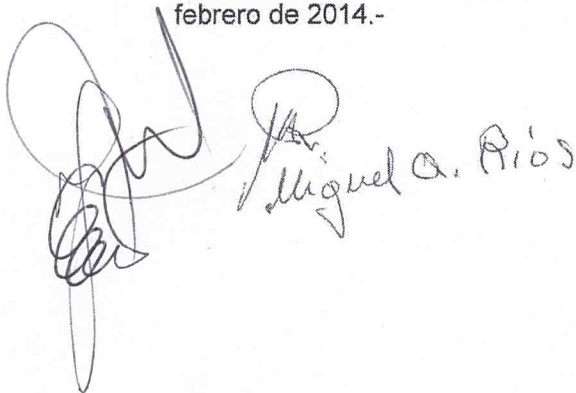 febrero de 2014.-
Miguel A. Ríos